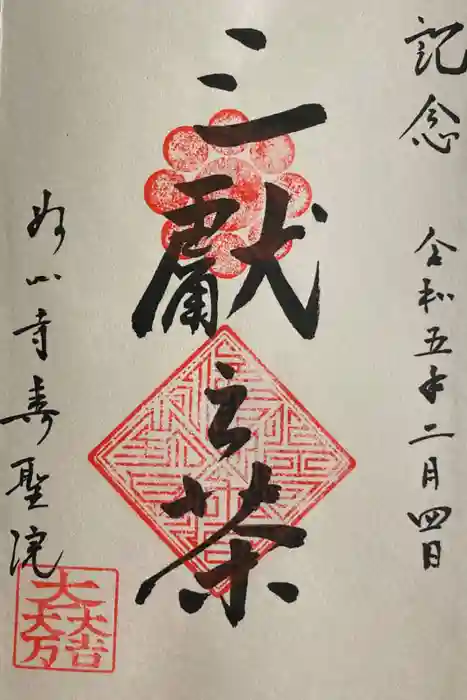 記念 令和五年二月四日
三獻之茶
妙心寺寿聖院
大一大万大吉